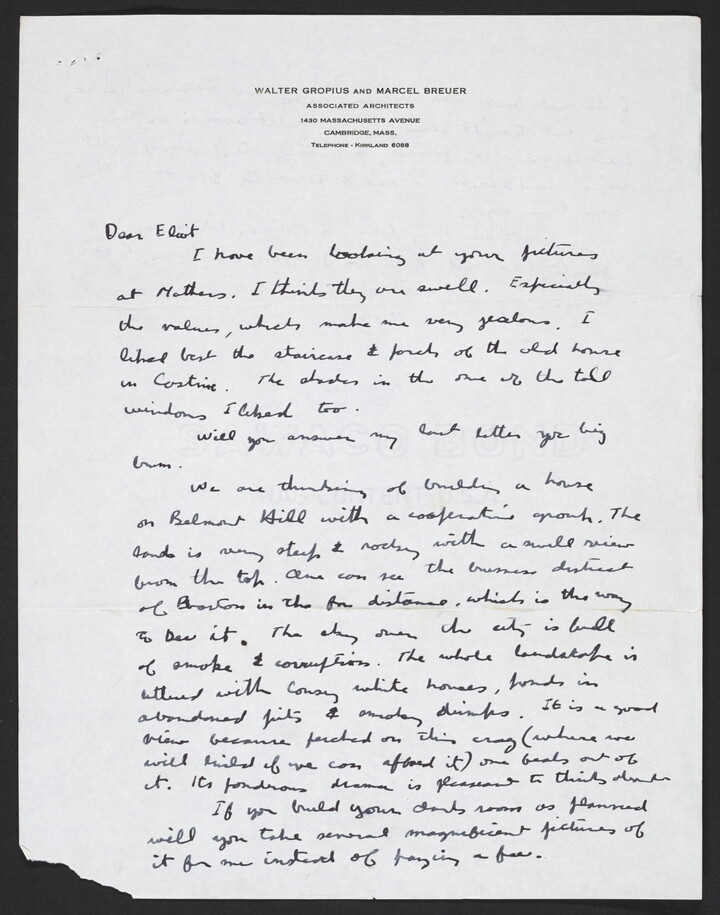 WALTER GROPIUS AND MARCEL BREUER
ASSOCIATED ARCHITECTS
1430 MASSACHUSETTS AVENUE
CAMBRIDGE, MASS.
TELEPHONE - KIRKLAND 6088
Dear Eliot
I have been looking at your pictures
at Mathers. I think they are swell. Especially
the values, which make me very jealous. I
liked best the staircase & porch of the old house
in Castine. The shades in the one of the tall
windows I liked too.
Will you answer my last letter you big
bum.
We are thinking of building a house
on Belmont Hill with a cooperative group. The
land is very steep & rocky with a swell view
from the top. One can see the business district
of Boston in the far distance, which is the way
to see it. The sky over the city is full
of smoke & corruption. The whole landscape is
littered with lousy white houses, ponds in
abandoned pits & smoky dumps. It is a good
view because perched on this crag (where we
will build if we can afford it) one feels out of
it. Its ponderous drama is pleasant to think about
If you build your dark room as planned
will you take several magnificent pictures of
it for me instead of paying a fee.